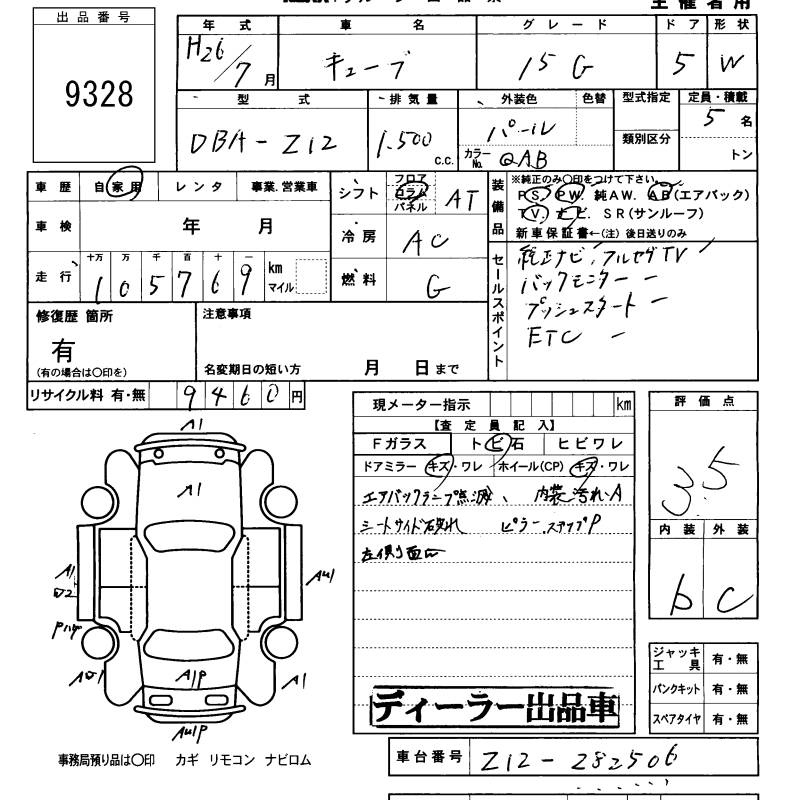 主催者用
出品番号
9328
年式 車名 グレード ドア 形状
H26/7月 キューブ 15G 5 W
型式 排気量 外装色 色替 型式指定 定員・積載
DBA-Z12 1,500 c.c. パール 類別区分 5名
カラーNo. QAB トン
車歴 自家用 レンタ 事業.営業車
車検 年 月
走行 十万 万 千 百 十 一
105769 km マイル
シフト フロア コラム パネル AT
冷房 AC
燃料 G
装備品
※純正のみ〇印をつけて下さい。
PS. PW. 純AW. AB(エアバック)
TV. ナビ. SR(サンルーフ)
新車保証書←(注) 後日送りのみ
セールスポイント
純正ナビ, フルセグTV
バックモニター
プッシュスタート
ETC
修復歴 箇所
有
(有の場合は〇印を)
注意事項
名変期日の短い方 月 日まで
リサイクル料 有・無 9460円
現メーター指示 km
【査定員記入】
Fガラス トビ石 ヒビワレ
ドアミラー キズ・ワレ ホイール(CP) キズ・ワレ
エアバックランプ点滅、 内装汚れA
シートサイド破れ ピラー.ステップP
左側面凹
評価点
3.5
内装 外装
b C
A1
A1
A1
A1
A1P
AU1P
ジャッキ工具 有・無
パンクキット 有・無
スペアタイヤ 有・無
ディーラー出品車
事務局預り品は〇印 カギ リモコン ナビロム
車台番号 Z12-282506